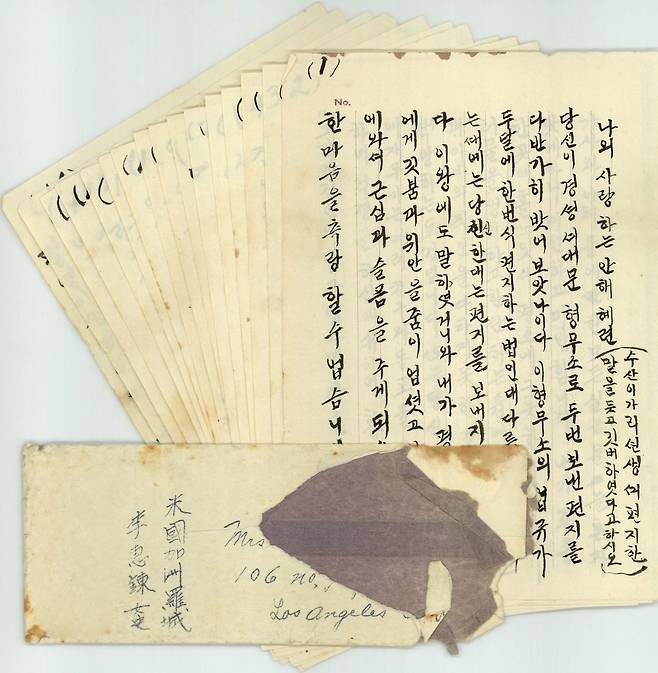 (1)
No.
나의 사랑하는 안해 혜련
(수산이가 리선생 의 편지한
말을 듯고 깃버하엿다고 하시오)
당신이 경성 서대문 형무소로 두번 보낸 편지를
다 반가히 밧어 보앗나이다 이 형무소의 법규가
두달에 한번식 편지하는 법인대 다른
는 때에는 당신한대는 편지를 보내지
다 이왕에도 말하엿거니와 내가 평
에게 깃봄과 위안을 줌이 업셧고
에와서 근심과 슬픔을 주게 되
한 마음을 측량 할 수 업습니
米國加洲羅城
李惠鍊
Mrs
106 no.
Los Angeles